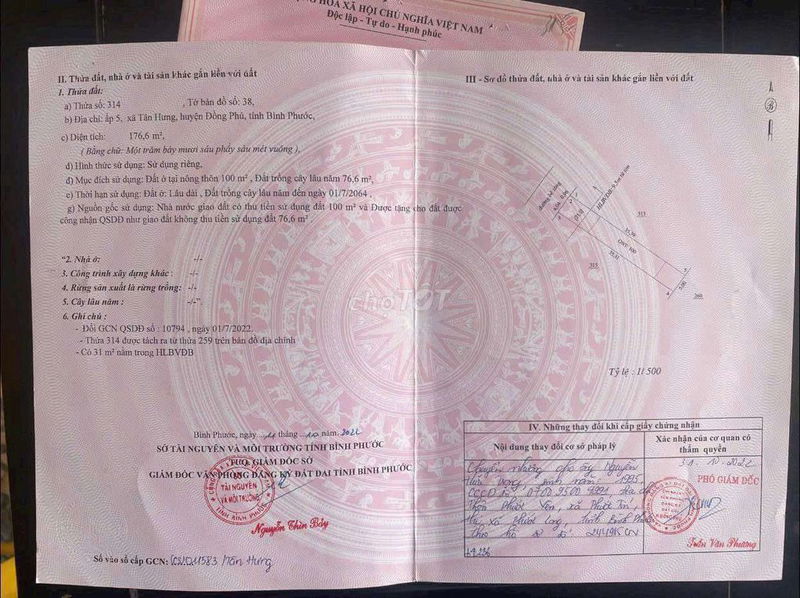 CỘNG HÒA XÃ HỘI CHỦ NGHĨA VIỆT NAM
Độc lập - Tự do - Hạnh phúc
II. Thửa đất, nhà ở và tài sản khác gắn liền với đất
1. Thửa đất:
a) Thửa số: 314 , Tờ bản đồ số: 38,
b) Địa chỉ: ấp 5, xã Tân Hưng, huyện Đồng Phú, tỉnh Bình Phước,
c) Diện tích: 176,6 m²,
( Bằng chữ: Một trăm bảy mươi sáu phẩy sáu mét vuông ),
d) Hình thức sử dụng: Sử dụng riêng,
đ) Mục đích sử dụng: Đất ở tại nông thôn 100 m² , Đất trồng cây lâu năm 76,6 m²,
e) Thời hạn sử dụng: Đất ở: Lâu dài , Đất trồng cây lâu năm đến ngày 01/7/2064 ,
g) Nguồn gốc sử dụng: Nhà nước giao đất có thu tiền sử dụng đất 100 m² và Được tặng cho đất được
công nhận QSDĐ như giao đất không thu tiền sử dụng đất 76,6 m²
"2. Nhà ở: -/-
3. Công trình xây dựng khác : -/-
4. Rừng sản xuất là rừng trồng: -/-
5. Cây lâu năm : -/-".
6. Ghi chú :
- Đổi GCN QSDĐ số : 10794 , ngày 01/7/2022.
- Thửa 314 được tách ra từ thửa 259 trên bản đồ địa chính
- Có 31 m² nằm trong HLBVĐB
Bình Phước, ngày 11 tháng 10 năm 2022
SỞ TÀI NGUYÊN VÀ MÔI TRƯỜNG TỈNH BÌNH PHƯỚC
TUQ. GIÁM ĐỐC SỞ
GIÁM ĐỐC VĂN PHÒNG ĐĂNG KÝ ĐẤT ĐAI TỈNH BÌNH PHƯỚC
SỞ
TÀI NGUYÊN
VÀ MÔI TRƯỜNG
TỈNH BÌNH PHƯỚC
Nguyễn Thìn Bảy
Số vào sổ cấp GCN: Tân Hưng
chợTỐT
III - Sơ đồ thửa đất, nhà ở và tài sản khác gắn liền với đất
B
313
315
35.31
260
5.00
Tỷ lệ : 1/ 500
IV. Những thay đổi khi cấp giấy chứng nhận
Nội dung thay đổi cơ sở pháp lý
Xác nhận của cơ quan có
thẩm quyền
Chuyển nhượng cho ông Nguyễn
sinh năm 1995
CCCD số địa chỉ
xã Phước Tín,
thị xã Phước Long, tỉnh Bình Phước
theo hồ sơ số
31 - 10 - 2022
PHÓ GIÁM ĐỐC
Trần Văn Phương